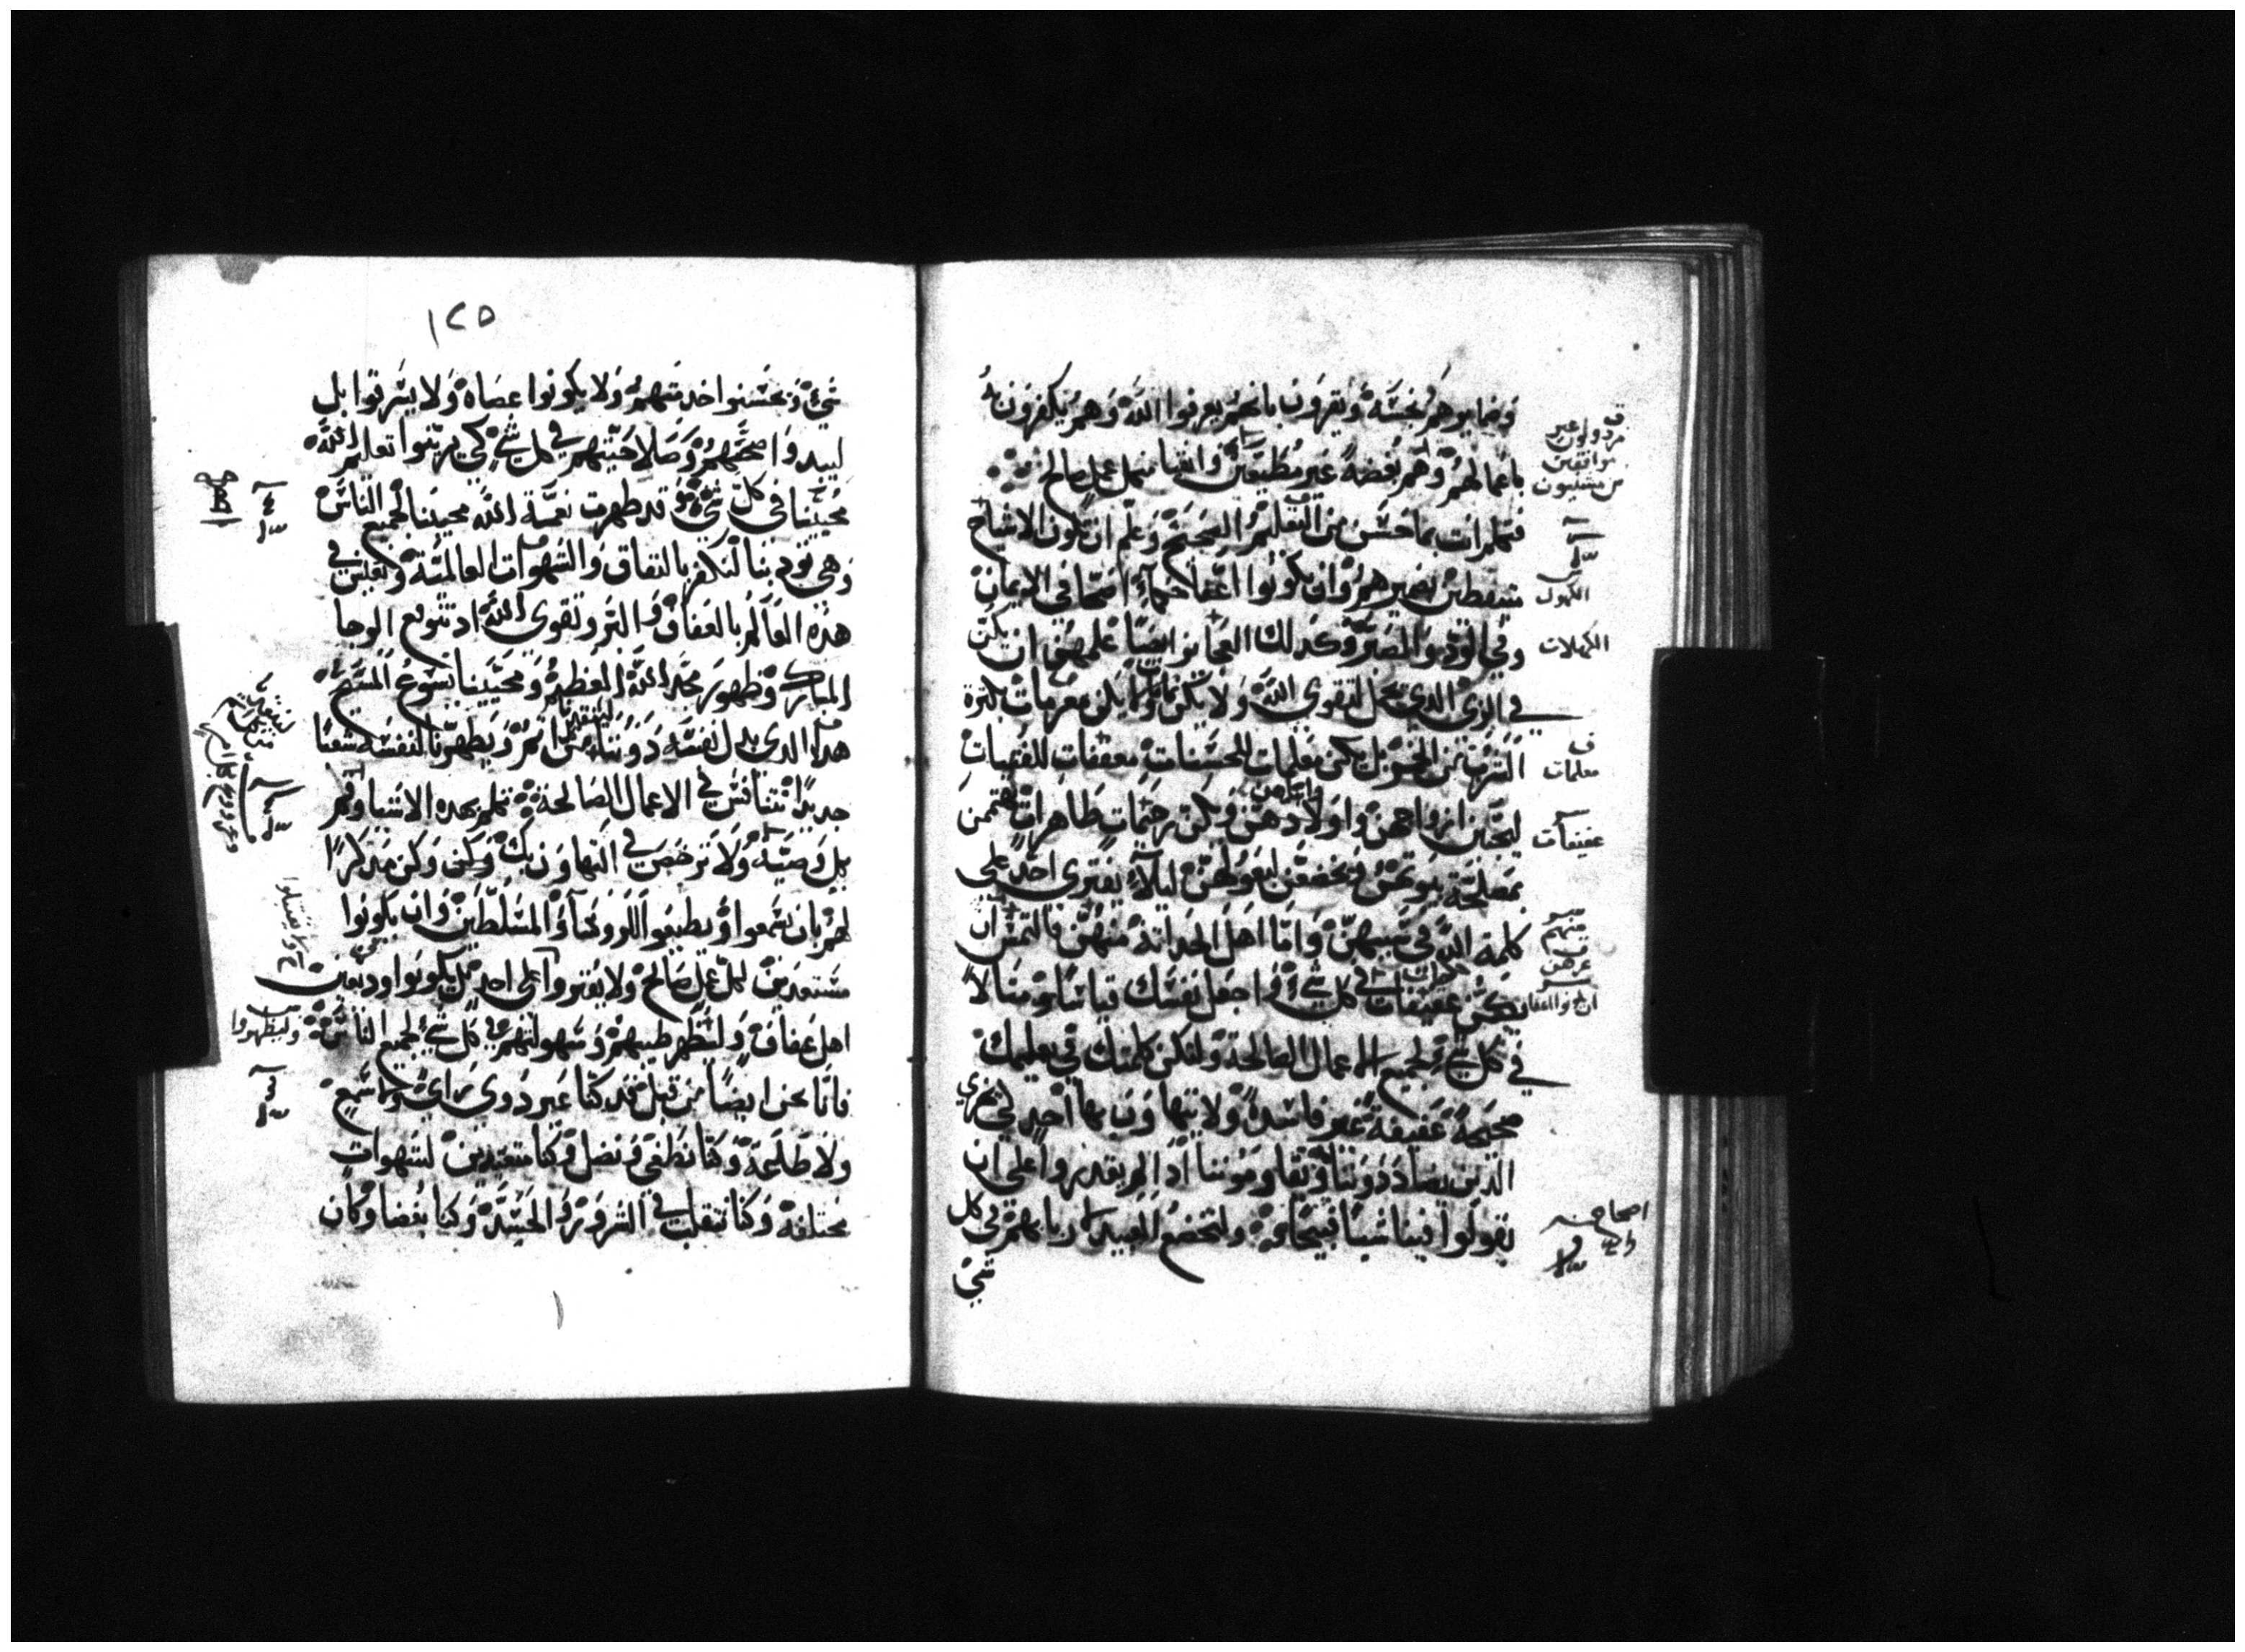 وضمايرهم نجسة ويقرون بانهم يعرفوا الله وهم يكفرون به
باعمالهم وهم بغضة غير مطيعين وانقيا من كل عمل صالح
فتعلم انت بما حسن من التعليم الصحيح وعلم ان تكون الاشياخ
متيقظين بضميرهم وان يكونوا اعفا حكماء اصحا في الايمان
وفي الود والصبر وكذلك العجايز ايضا علمهن ان يكن
في الزي الذي يحل لتقوى الله ولا يكن نمامات ولا يكن مغرمات بكثرة
الشرب من الخمر بل يكن معلمات للحسنات معففات للفتيات
ليحبين ازواجهن واولادهن ويكن رحيمات طاهرات يهتممن
بمصلحة بيوتهن ويخضعن لبعولهن ليلا يفتري احد على
كلمة الله في سببهن واما اهل الحداثة منهن فالتمس ان
يكن عفيفات في كل شي واجعل نفسك قياسا ومثالا
في كل شي لجميع الاعمال الصالحة ولتكن كلمتك في تعليمك
صحيحة عفيفة غير فاسدة ولا يتهاون بها احد لي يخزي
الذين يضادونا ويقاومونا اذا لم يقدروا على ان
يقولوا فينا شيا قبيحا ولتخضع العبيد لاربابهم في كل
شي
مردولون غير
موافقين
الكهول
الكهلات
معلمات
عفيفات
منهم
اصحاح
١٢٥
شي ويحسنوا خدمتهم ولا يكونوا عصاه ولا يسرقوا بل
ليبدوا صحتهم وصلاحيتهم في كل شي كي يزينوا تعاليم الله
محيينا في كل شي قد ظهرت نعمة الله محيينا لجميع الناس
وهي تودبنا لنكفر بالنفاق والشهوات العالمية ونعيش في
هذه العالم بالعفاف والبر وتقوى الله اذ نتوقع الرجا
المبارك وظهور مجد الله العظيم ومحيينا يسوع المسيح
هذا الذي بذل نفسه دوننا من اثم ويطهرنا لنفسه شعبا
جديدا نتنافس في الاعمال الصالحة تكلم بهذه الاشيا وقم
بكل وصية ولا ترخص في التهاون بك وكن مذكرا
لهم بان يسمعوا ويطيعوا للروسا والمسلطين وان يكونوا
مستعدين لكل عمل صالح ولا يفتروا على احد بل يكونوا وديعين
اهل عفاف ولتظهر طيبهم وسهولتهم في كل شي لجميع الناس
فانما نحن ايضا من قبل قد كنا غير ذوي راي ولا سمع
ولا طاعة وكنا نطغى ونضل وكنا متعبدين لشهوات
مختلفة وكنا نتقلب في الشرور والحسد وكنا بغضا وكان
وليظهروا